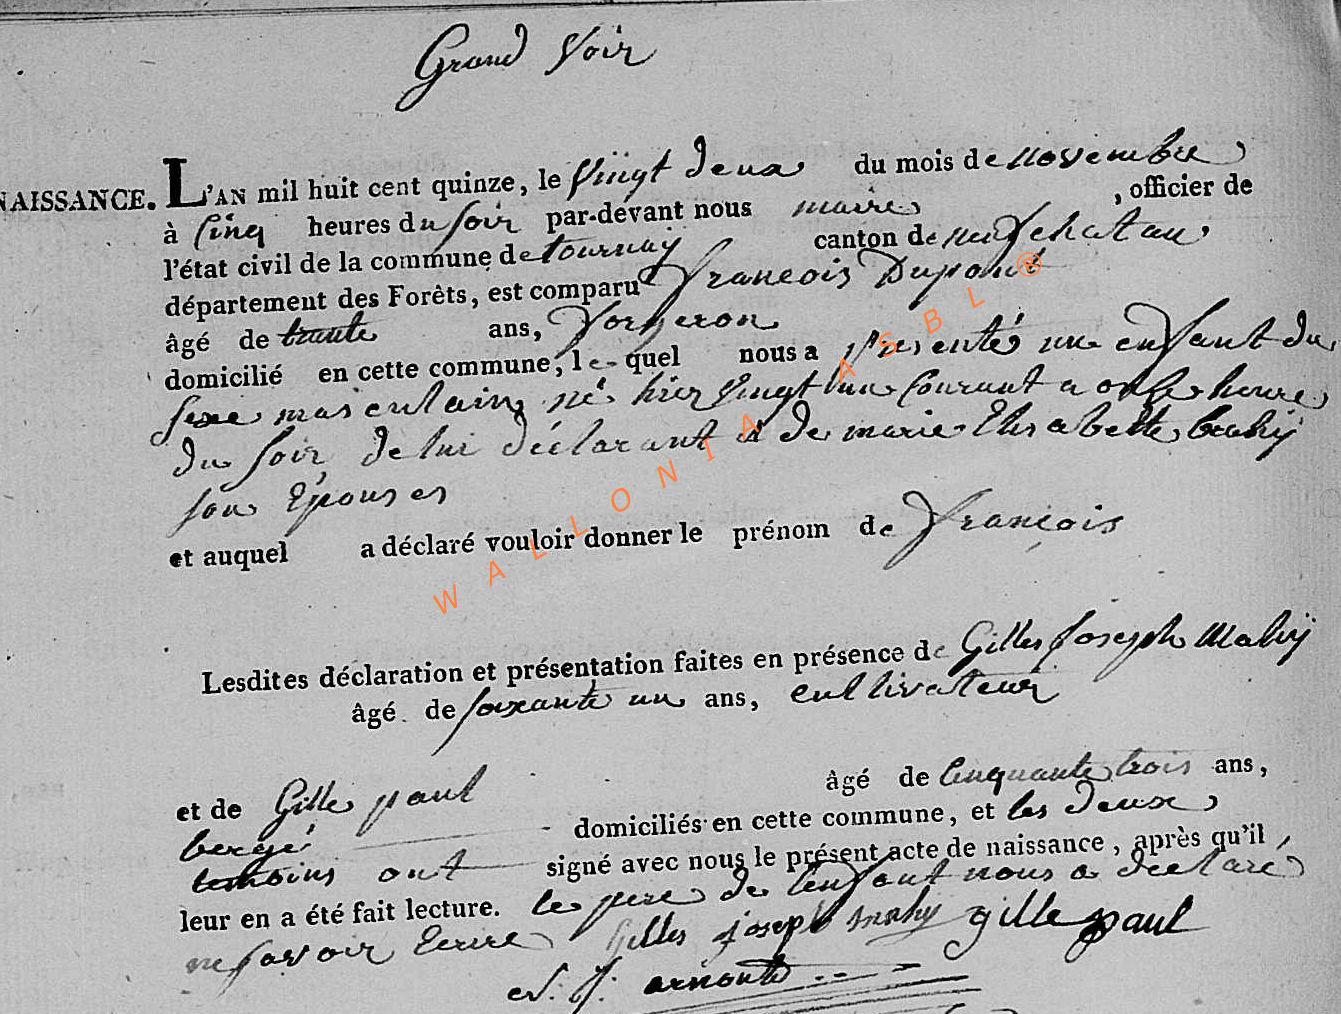 Grand Voir
NAISSANCE. L'AN mil huit cent quinze, le vingt deux du mois de novembre
à cinq heures du soir par-devant nous maire , officier de
l'état civil de la commune de tournay canton de neufchatau
département des Forêts, est comparu francois Dupont
âgé de trante ans, forgeron
domicilié en cette commune, le quel nous a presenté un enfant du
sexe masculain né hier vingt un courant a onse heure
du soir de lui déclarant et de marie Elisabette brahy
son Epouses
et auquel a déclaré vouloir donner le prénom de françois
Lesdites déclaration et présentation faites en présence de Gilles joseph Mahy
âgé de soixante un ans, cultivateur
et de Gille paul âgé de cinquante trois ans,
bergé domiciliés en cette commune, et les deux
temoins ont signé avec nous le présent acte de naissance, après qu'il
leur en a été fait lecture. le pere de lenfant nous a declaré
ne savoir Ecrire Gilles joseph mahy gille paul
arnould
WALLONIA ASBL ®